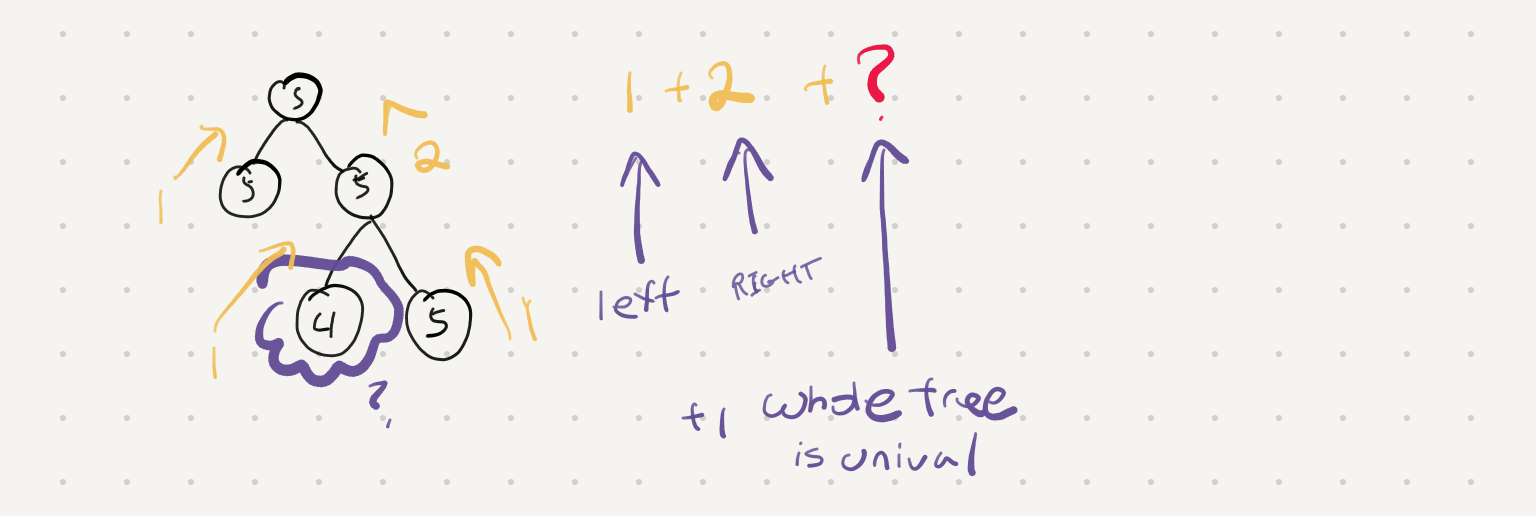 1 + 2 + ?
5
2
5
5
1
4
5
1
1
?
left
RIGHT
+1 whole tree
is unival